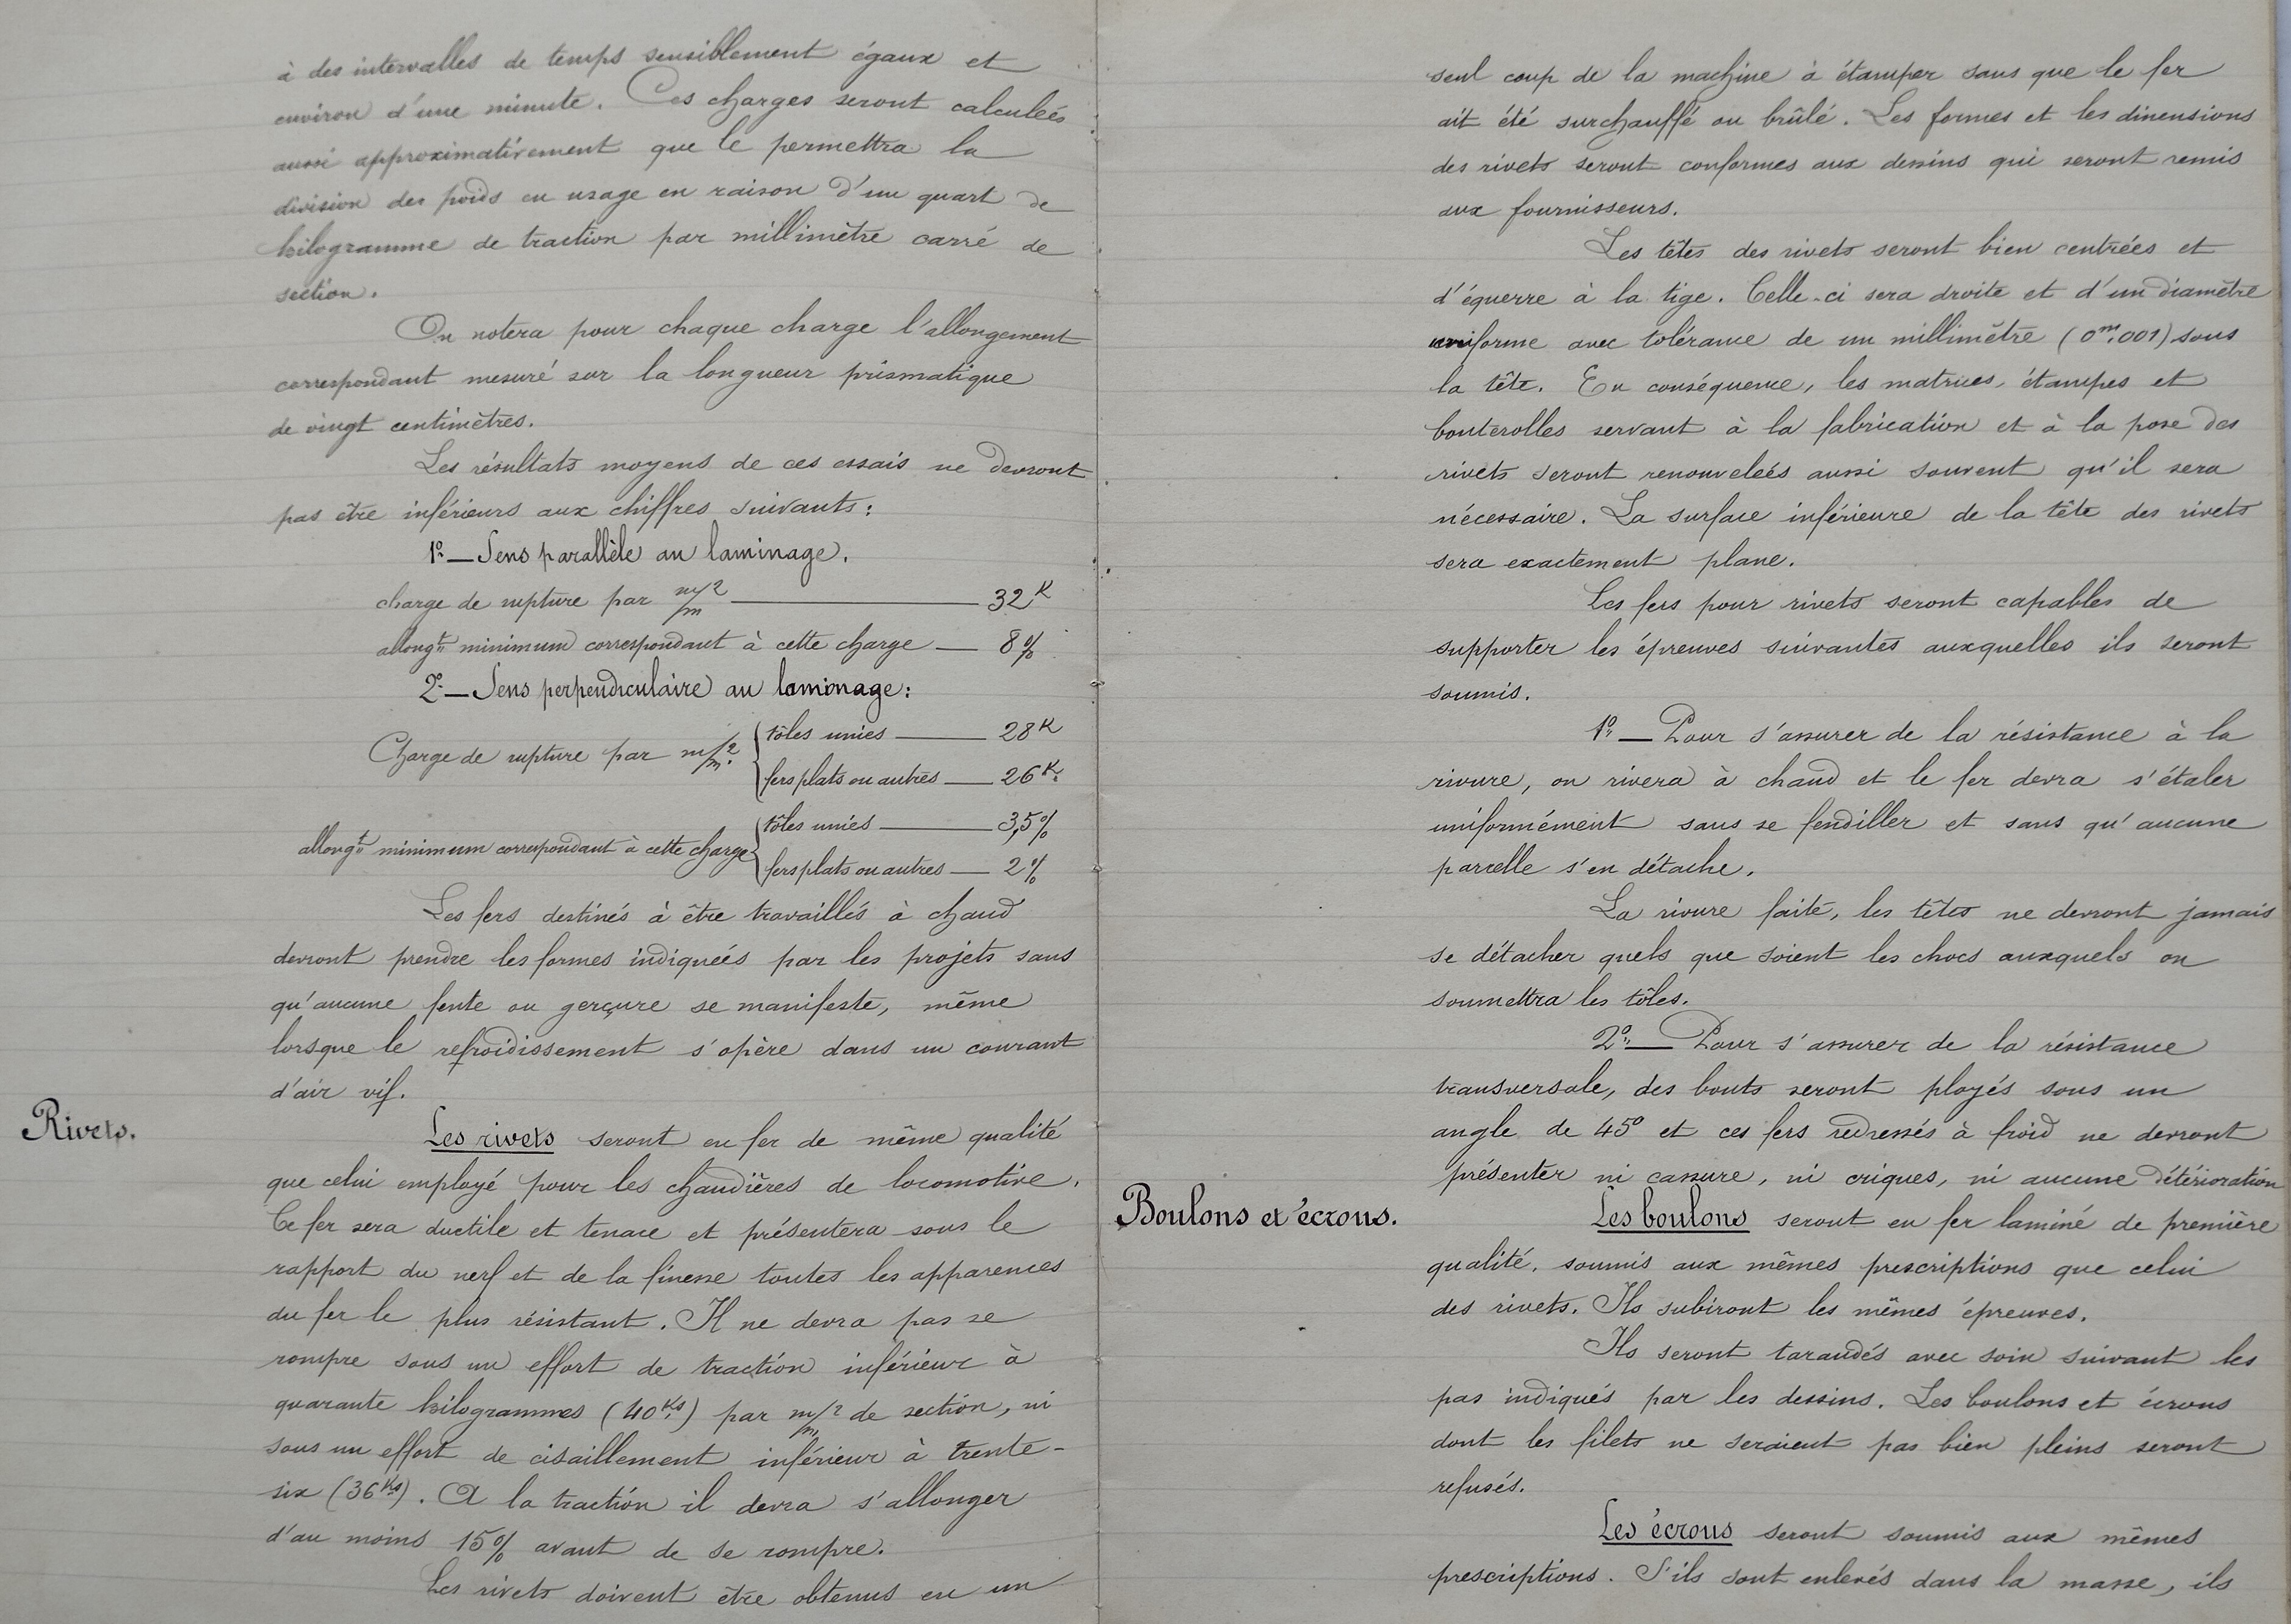 à des intervalles de temps sensiblement égaux et
environ d'une minute. Ces charges seront calculées
aussi approximativement que le permettra la
division des poids en usage en raison d'un quart de
kilogramme de traction par millimètre carré de
section.
On notera pour chaque charge l'allongement
correspondant mesuré sur la longueur prismatique
de vingt centimètres.
Les résultats moyens de ces essais ne devront
pas être inférieurs aux chiffres suivants :
1º — Sens parallèle au laminage.
charge de rupture par m/m² — 32 K
allongt minimum correspondant à cette charge — 8 %
2º — Sens perpendiculaire au laminage :
Charge de rupture par m/m² { tôles unies — 28 K
fers plats ou autres — 26 K.
allongt minimum correspondant à cette charge { tôles unies — 3,5 %
fers plats ou autres — 2 %
Les fers destinés à être travaillés à chaud
devront prendre les formes indiquées par les projets sans
qu'aucune fente ou gerçure se manifeste, même
lorsque le refroidissement s'opère dans un courant
d'air vif.
Rivets.
Les rivets seront en fer de même qualité
que celui employé pour les chaudières de locomotive.
Ce fer sera ductile et tenace et présentera sous le
rapport du nerf et de la finesse toutes les apparences
du fer le plus résistant. Il ne devra pas se
rompre sous un effort de traction inférieur à
quarante kilogrammes (40 Ks) par m/m² de section, ni
sous un effort de cisaillement inférieur à trente-
six (36 Ks). A la traction il devra s'allonger
d'au moins 15 % avant de se rompre.
Les rivets doivent être obtenus en un
seul coup de la machine à étamper sans que le fer
ait été surchauffé ou brûlé. Les formes et les dimensions
des rivets seront conformes aux dessins qui seront remis
aux fournisseurs.
Les têtes des rivets seront bien centrées et
d'équerre à la tige. Celle-ci sera droite et d'un diamètre
uniforme avec tolérance de un millimètre (0m,001) sous
la tête. En conséquence, les matrices, étampes et
bouterolles servant à la fabrication et à la pose des
rivets seront renouvelées aussi souvent qu'il sera
nécessaire. La surface inférieure de la tête des rivets
sera exactement plane.
Les fers pour rivets seront capables de
supporter les épreuves suivantes auxquelles ils seront
soumis.
1º — Pour s'assurer de la résistance à la
rivure, on rivera à chaud et le fer devra s'étaler
uniformément sans se fendiller et sans qu'aucune
parcelle s'en détache.
La rivure faite, les têtes ne devront jamais
se détacher quels que soient les chocs auxquels on
soumettra les tôles.
2º — Pour s'assurer de la résistance
transversale, des bouts seront ployés sous un
angle de 45º et ces fers redressés à froid ne devront
présenter ni cassure, ni criques, ni aucune détérioration
Boulons et écrous.
Les boulons seront en fer laminé de première
qualité, soumis aux mêmes prescriptions que celui
des rivets. Ils subiront les mêmes épreuves.
Ils seront taraudés avec soin suivant les
pas indiqués par les dessins. Les boulons et écrous
dont les filets ne seraient pas bien pleins seront
refusés.
Les écrous seront soumis aux mêmes
prescriptions. S'ils sont enlevés dans la masse, ils